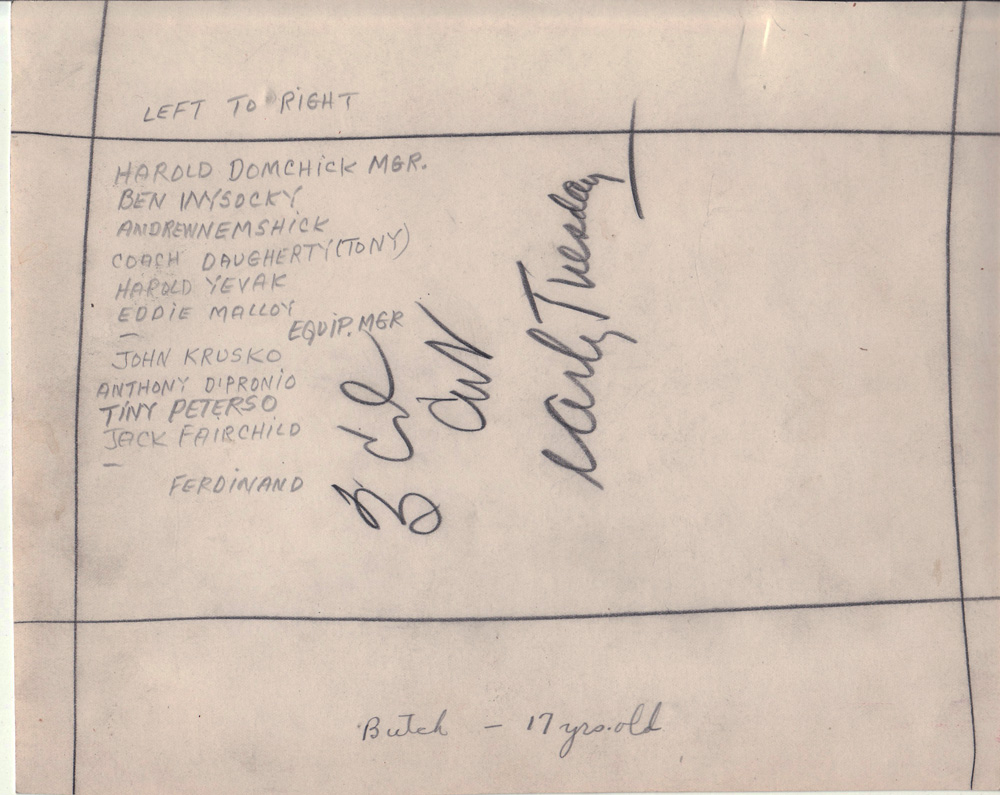 LEFT TO RIGHT
HAROLD DOMCHICK MGR.
BEN WYSOCKY
ANDREW NEMSHICK
COACH DAUGHERTY (TONY)
HAROLD YEVAK
EDDIE MALLOY
EQUIP. MGR
JOHN KRUSKO
ANTHONY DIPRONIO
TINY PETERSO
JACK FAIRCHILD
FERDINAND
3 Col
early Tuesday
Butch – 17 yrs. old